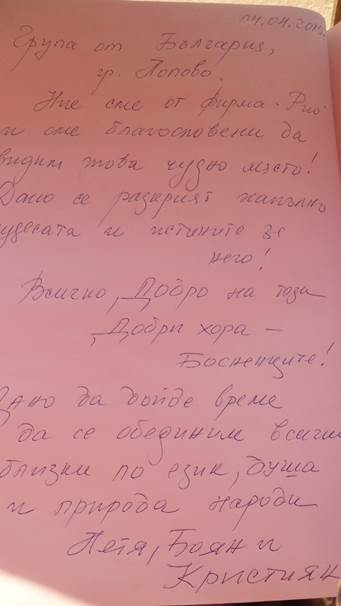 14.04.201
Група от България,
гр. Попово.
Ние сме от фирма "Рио"
и сме благословени да
видим това чудно място!
Дано се разкрият напълно
чудесата и истините за
него!
Всичко Добро на този
Добри хора –
Босненците!
Дано да дойде време
да се обединим всички
близки по език, душа
и природа народи
Петя, Боян и
Кристиян